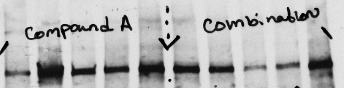 Compound A
Combination